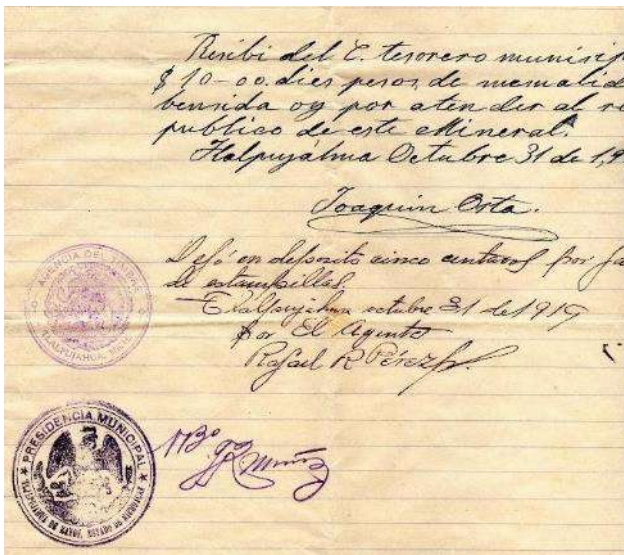 Resibi del C. tesorero municip
$ 10-00. dies pesos, de mensualid
bensida oy por atender al re
publico de este Mineral.
Tlalpujahua Octubre 31 de 1,9
Joaquin Orta.
Dejó en deposito cinco centavos por fa
de estampillas.
Tlalpujahua octubre 31 de 1919
por El Agente
Rafael R Pérez
AGENCIA DEL TIMBRE
TLALPUJAHUA, MICH.
Vº Bº
Muñoz
PRESIDENCIA MUNICIPAL